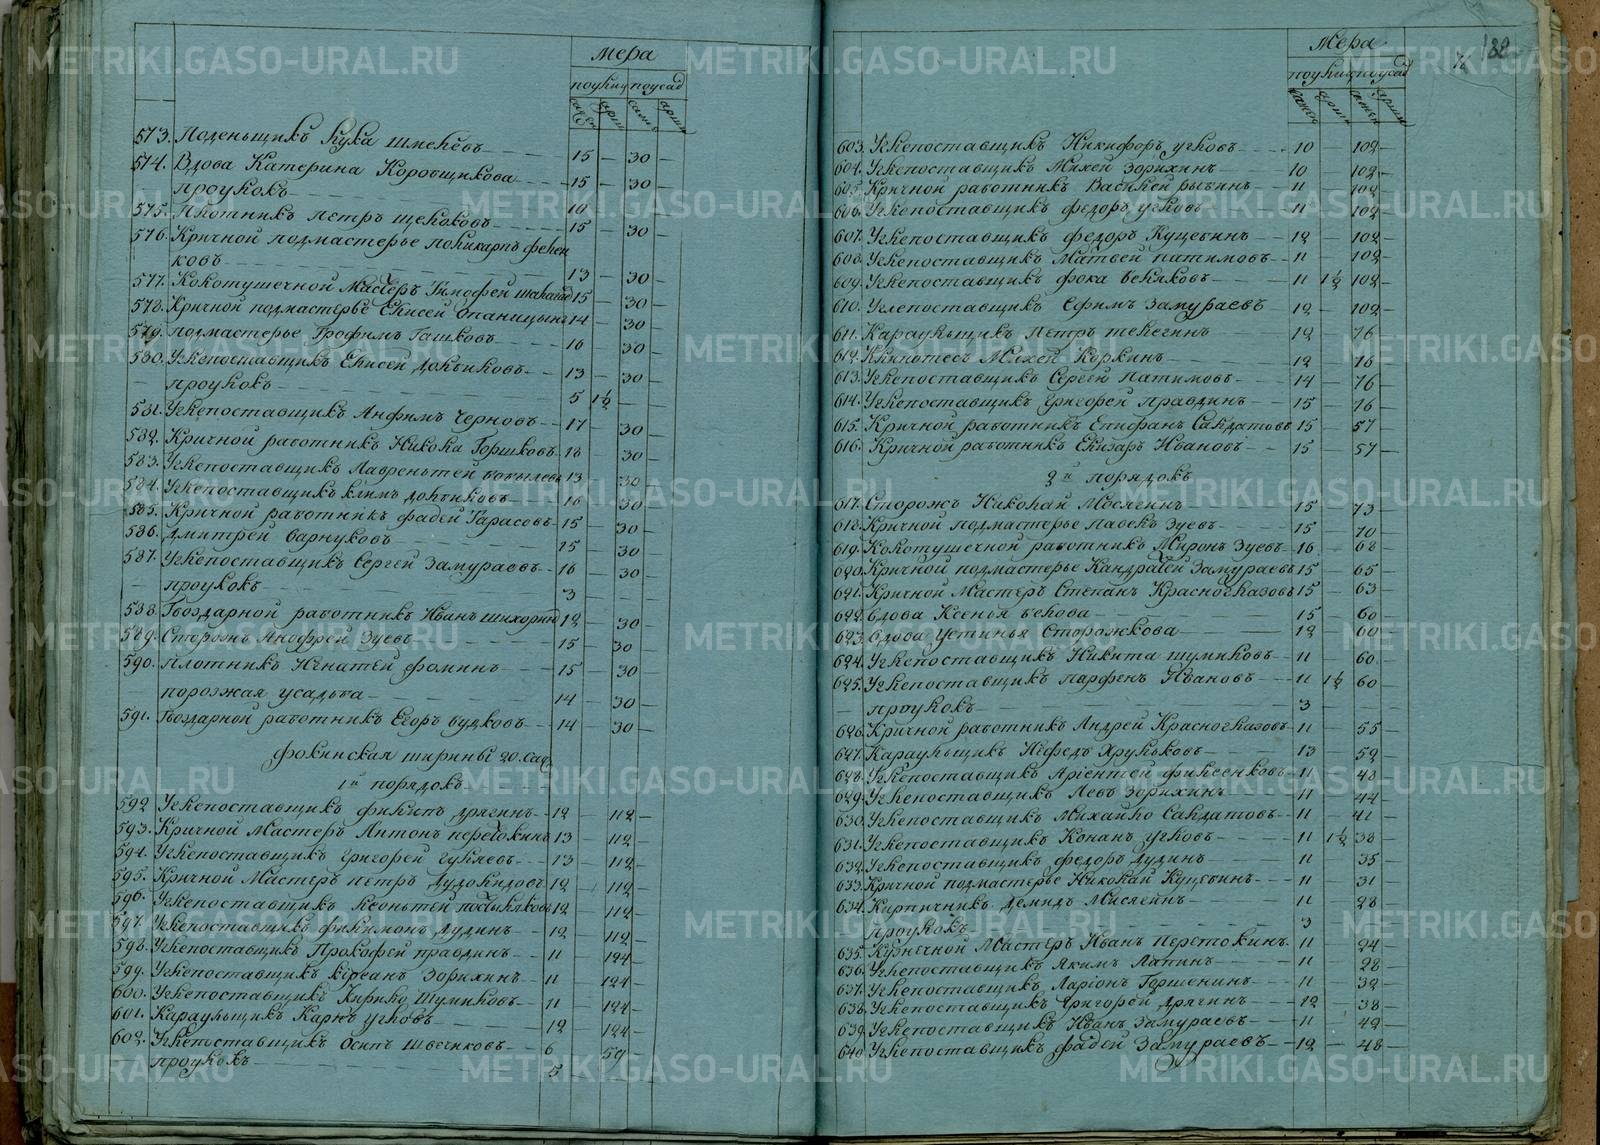 мера
поулиц поусад
сажен арши сажен арши
573. Поденьщикъ Лука Шмелёвъ 15 — 30 —
574. Вдова Катерина Коробщикова 15 — 30 —
проулокъ 10
575. Плотникъ Петръ Щелоковъ 15 — 30 —
576. Кричной подмастерье Поликарпъ
ковъ 13 — 30 —
577. Колотушечной Мастеръ Тимофей 15 — 30 —
578. Кричной подмастерье Елисей Опаницынъ 14 — 30 —
579. Подмастерье Трофимъ Ташковъ 16 30 —
580. Углепоставщикъ Елисей Долбиковъ 13 — 30 —
проулокъ 5 1½
581. Углепоставщикъ Анфимъ Черновъ 17 — 30 —
582. Кричной работникъ Никола Горшковъ 18 30 —
583. Углепоставщикъ Лаврентей 13 30 —
584. Углепоставщикъ Климъ Долбиковъ 16 30 —
585. Кричной работникъ Фадей Тарасовъ 15 — 30 —
586. Дмитрей Барнуковъ 15 — 30 —
587. Углепоставщикъ Сергей Замураевъ 16 — 30 —
проулокъ 3 —
588. Гвоздарной работникъ Иванъ 12 — 30 —
589. Сторожъ Анофрей Зуевъ 15 — 30 —
590. Плотникъ Игнатей Фоминъ 15 — 30 —
порозжая усадьба 14 — 30 —
591. Гвоздарной работникъ Егоръ Будковъ 14 — 30 —
Фокинская ширины 20. саж
1й порядокъ
592 Углепоставщикъ Филипъ Дрягинъ 12 — 112 —
593. Кричной Мастеръ Антонъ Перетокинъ 13 — 112 —
594. Углепоставщикъ Григорей Гуляевъ 13 — 112 —
595. Кричной Мастеръ Петръ 12 — 112 —
596. Углепоставщикъ Леонтей 12 — 112 —
597. Углепоставщикъ Филимонъ Дудинъ 12 — 112 —
598. Углепоставщикъ Прокофей Правдинъ 11 — 124 —
599. Углепоставщикъ Кирсанъ Зорихинъ 11 — 124 —
600. Углепоставщикъ Кирило Шумиковъ 11 — 124 —
601. Караульщикъ Карпъ Угловъ 12 124 —
602. Углепоставщикъ Осипъ Швечиковъ 6 59 —
проулокъ 5
188
мера
поулиц поусад
сажен арши сажен арши
603. Углепоставщикъ Никифоръ Угловъ 10 102 —
604. Углепоставщикъ Михей Зорихинъ 10 102 —
605. Кричной работникъ Василей Рыбинъ 11 102 —
606. Углепоставщикъ Федоръ Угловъ 11 102 —
607. Углепоставщикъ Федоръ Куцебинъ 12 — 102 —
608. Углепоставщикъ Матвей Патимовъ 11 — 102 —
609. Углепоставщикъ Фока Беляковъ 11 1½ 102 —
610. Углепоставщикъ Ефимъ Замураевъ 12 — 102 —
611. Караульщикъ Петръ Телегинъ 12 — 76 —
612. Михей Коркинъ 12 — 76 —
613. Углепоставщикъ Сергей Патимовъ 14 — 76 —
614. Углепоставщикъ Григорей Правдинъ 15 — 76 —
615. Кричной работникъ Епифанъ Салдатовъ 15 — 57 —
616. Кричной работникъ Елизаръ Ивановъ 15 — 57 —
2й порядокъ
617. Сторожъ Николай Маслеинъ 15 — 73 —
618. Кричной подмастерье Павелъ Зуевъ 15 — 70 —
619. Колотушечной работникъ Миронъ Зуевъ 16 — 68 —
620. Кричной подмастерье Кандратей Замураевъ 15 — 65 —
621. Кричной Мастеръ Степанъ Красноглазовъ 15 — 63 —
622. вдова Ксенья Белова 15 — 60 —
623. вдова Устинья Сторожкова 12 — 60 —
624. Углепоставщикъ Никита Шумиковъ 11 — 60 —
625. Углепоставщикъ Парфенъ Ивановъ 11 1½ 60 —
проулокъ 3 —
626. Кричной работникъ Андрей Красноглазовъ 11 — 55 —
627. Караульщикъ Нефедъ Хрульковъ 13 — 52 —
628. Углепоставщикъ 11 — 48 —
629. Углепоставщикъ Левъ Зорихинъ 11 — 44 —
630. Углепоставщикъ Михайло Салдатовъ 11 — 41 —
631. Углепоставщикъ Конанъ Угловъ 11 1½ 38 —
632. Углепоставщикъ Федоръ Дудинъ 11 — 35 —
633. Кричной подмастерье Николай Куцебинъ 11 — 31 —
634. Кирпичникъ Демидъ Маслеинъ 11 — 28 —
проулокъ 3 —
635. Кузнечной Мастеръ Иванъ Перетокинъ 11 — 24 —
636. Углепоставщикъ Якимъ Лапинъ 11 — 28 —
637. Углепоставщикъ Ларіонъ Горшенинъ 11 — 32 —
638. Углепоставщикъ Григорей Дрягинъ 12 — 38 —
639. Углепоставщикъ Иванъ Замураевъ 11 — 42 —
640. Углепоставщикъ Фадей Замураевъ 12 — 48 —
METRIKI.GASO-URAL.RU